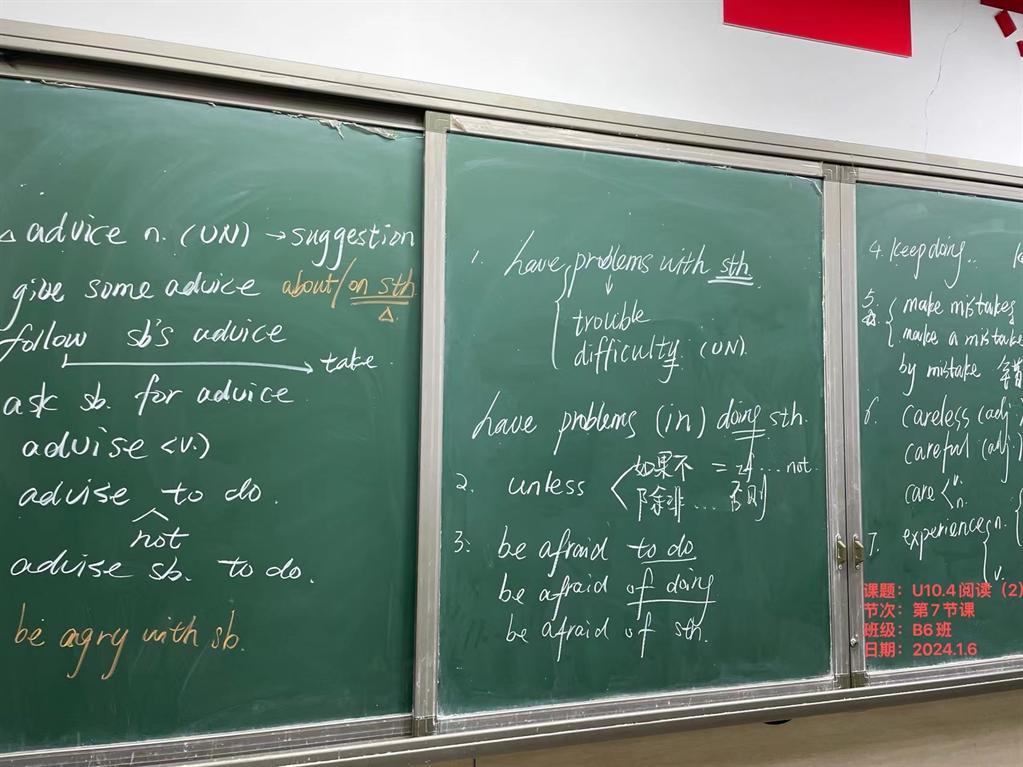 △ advice n. (UN) → suggestion
give some advice about/on sth
△
follow sb's advice
take
ask sb. for advice
advise <v.)
advise to do.
not
advise sb. to do.
be agry with sb.
1. have problems with sth
trouble
difficulty (UN).
have problems (in) doing sth.
2. unless < 如果不 = if...not.
除非 ... 否则
3. be afraid to do
be afraid of doing
be afraid of sth.
4. keep doing..
5. make mistakes
make a mistake
by mistake
6. careless (adj.
careful (adj.)
care < v.
n.
7. experience n.
v.
课题：U10.4阅读（2）
节次：第7节课
班级：B6班
日期：2024.1.6